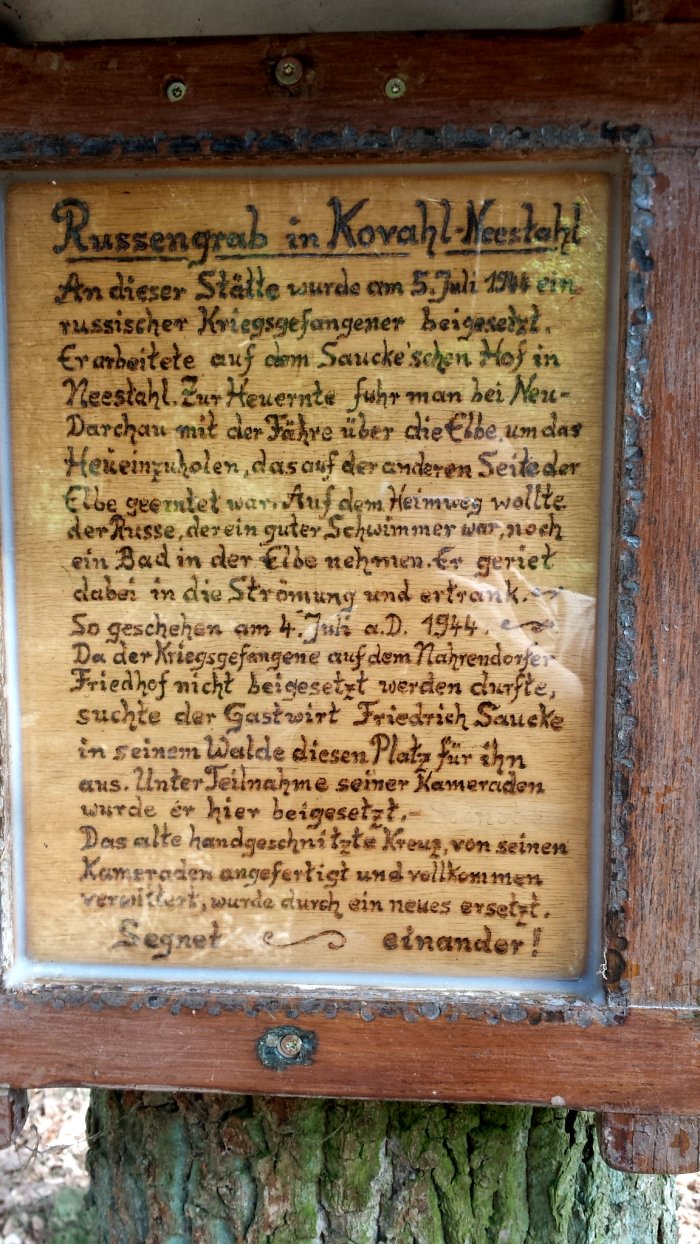 Russengrab in Kovahl-Neestahl
An dieser Stätte wurde am 5. Juli 1944 ein
russischer Kriegsgefangener beigesetzt.
Er arbeitete auf dem Saucke'schen Hof in
Neestahl. Zur Heuernte fuhr man bei Neu-
Darchau mit der Fähre über die Elbe, um das
Heu einzuholen, das auf der anderen Seite der
Elbe geerntet war. Auf dem Heimweg wollte
der Russe, der ein guter Schwimmer war, noch
ein Bad in der Elbe nehmen. Er geriet
dabei in die Strömung und ertrank.
So geschehen am 4. Juli a.D. 1944.
Da der Kriegsgefangene auf dem Nahrendorfer
Friedhof nicht beigesetzt werden durfte,
suchte der Gastwirt Friedrich Saucke
in seinem Walde diesen Platz für ihn
aus. Unter Teilnahme seiner Kameraden
wurde er hier beigesetzt.-
Das alte handgeschnitzte Kreuz, von seinen
Kameraden angefertigt und vollkommen
verwittert, wurde durch ein neues ersetzt.
Segnet einander!